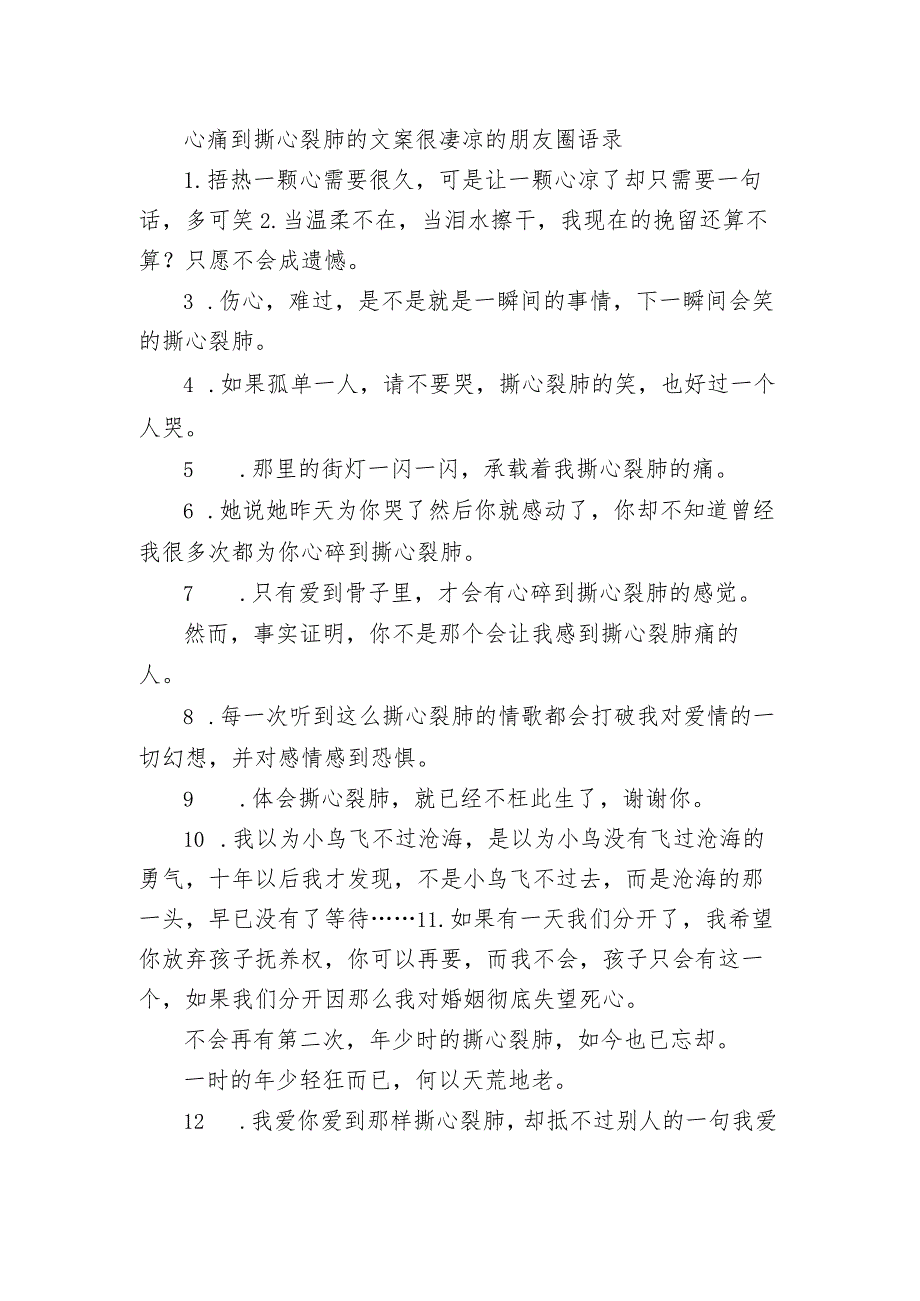 心痛到撕心裂肺的文案很凄凉的朋友圈语录
1.捂热一颗心需要很久，可是让一颗心凉了却只需要一句
话，多可笑2.当温柔不在，当泪水擦干，我现在的挽留还算不
算？只愿不会成遗憾。
3 .伤心，难过，是不是就是一瞬间的事情，下一瞬间会笑
的撕心裂肺。
4 .如果孤单一人，请不要哭，撕心裂肺的笑，也好过一个
人哭。
5 .那里的街灯一闪一闪，承载着我撕心裂肺的痛。
6 .她说她昨天为你哭了然后你就感动了，你却不知道曾经
我很多次都为你心碎到撕心裂肺。
7 .只有爱到骨子里，才会有心碎到撕心裂肺的感觉。
然而，事实证明，你不是那个会让我感到撕心裂肺痛的
人。
8 .每一次听到这么撕心裂肺的情歌都会打破我对爱情的一
切幻想，并对感情感到恐惧。
9 .体会撕心裂肺，就已经不枉此生了，谢谢你。
10 .我以为小鸟飞不过沧海，是以为小鸟没有飞过沧海的
勇气，十年以后我才发现，不是小鸟飞不过去，而是沧海的那
一头，早已没有了等待……11.如果有一天我们分开了，我希望
你放弃孩子抚养权，你可以再要，而我不会，孩子只会有这一
个，如果我们分开因那么我对婚姻彻底失望死心。
不会再有第二次，年少时的撕心裂肺，如今也已忘却。
一时的年少轻狂而已，何以天荒地老。
12 .我爱你爱到那样撕心裂肺，却抵不过别人的一句我爱